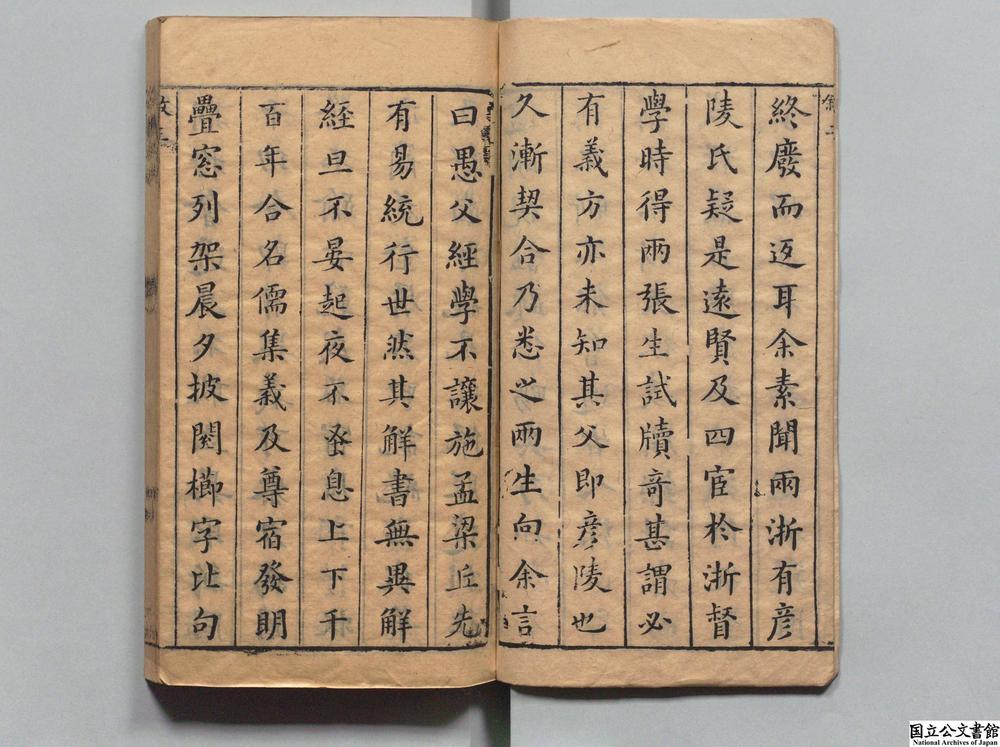 終廢而返耳余素聞兩浙有彥
陵氏疑是遠賢及四宦於浙督
學時得兩張生試牘竒甚謂必
有義方亦未知其父即彥陵也
久漸契合乃悉之兩生向余言
曰愚父經學不讓施孟梁丘先
有易統行世然其觧書無異觧
經旦不晏起夜不蚤息上下千
百年合名儒集義及尊宿發明
疊窓列架晨夕披閱櫛字比句
国立公文書館
National Archives of Japan